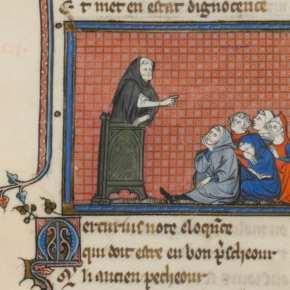 Et met en estat dignocence
Mercurius note eloqũce
qui doit estre en bon p̃scheour
Qͥ li ancien pecheour